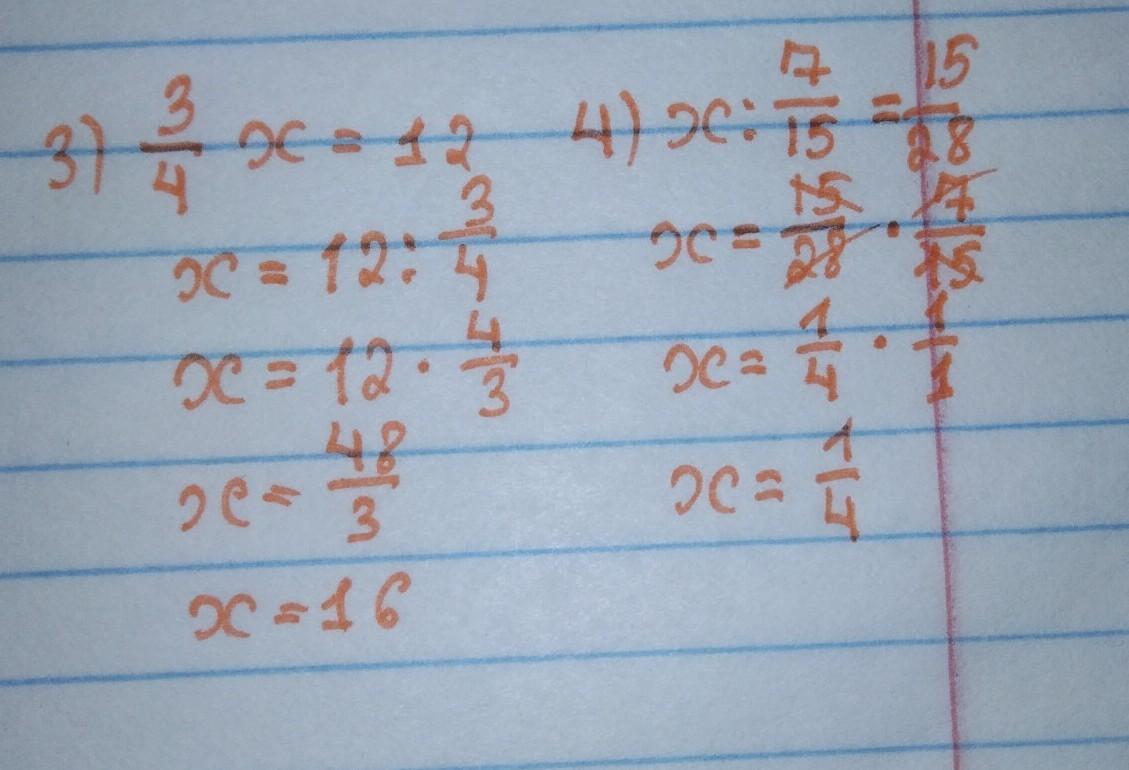 3) 3/4 x = 12
x = 12 : 3/4
x = 12 · 4/3
x = 48/3
x = 16
4) x : 7/15 = 15/28
x = 15/28 · 7/15
x = 1/4 · 1/1
x = 1/4